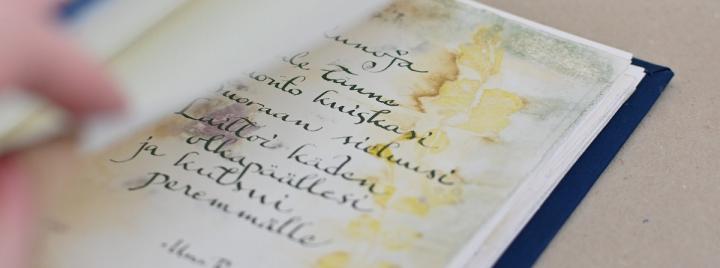 unoja
le tänne
onto kuiskasi
suoraan sieluusi
Laittoi käden
olkapäällesi
ja kutsui
peremmälle